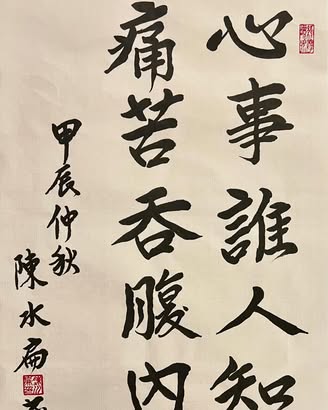 心事誰人知
痛苦吞腹內
甲辰仲秋
陳水扁